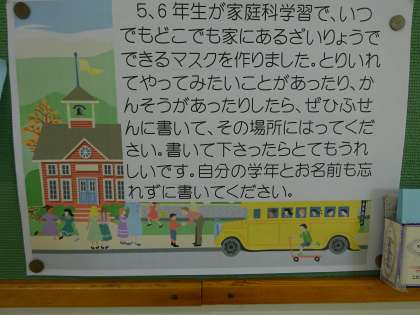 5、6年生が家庭科学習で、いつ
でもどこでも家にあるざいりょうで
できるマスクを作りました。とりいれ
てやってみたいことがあったり、か
んそうがあったりしたら、ぜひふせ
んに書いて、その場所にはってくだ
さい。書いて下さったらとてもうれ
しいです。自分の学年とお名前も忘
れずに書いてください。